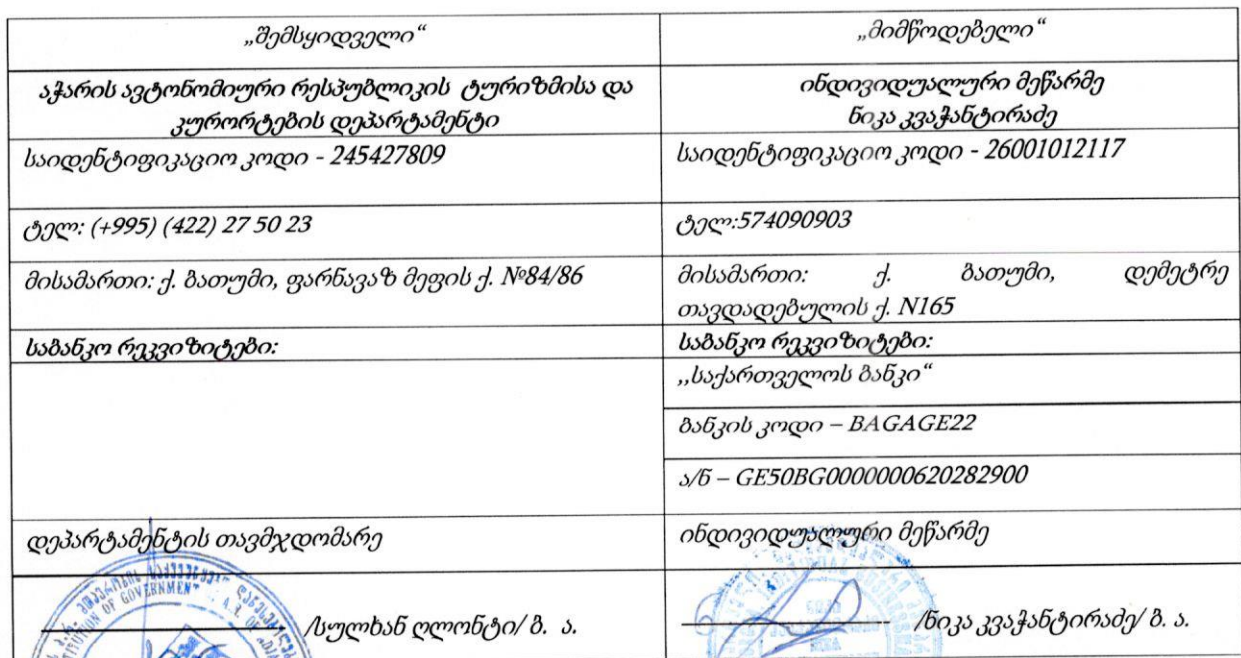 „შემსყიდველი“
„მიმწოდებელი“
აჭარის ავტონომიური რესპუბლიკის ტურიზმისა და
კურორტების დეპარტამენტი
ინდივიდუალური მეწარმე
ნიკა კვაჭანტირაძე
საიდენტიფიკაციო კოდი - 245427809
საიდენტიფიკაციო კოდი - 26001012117
ტელ: (+995) (422) 27 50 23
ტელ:574090903
მისამართი: ქ. ბათუმი, ფარნავაზ მეფის ქ. №84/86
მისამართი: ქ. ბათუმი, დემეტრე
თავდადებულის ქ. N165
საბანკო რეკვიზიტები:
საბანკო რეკვიზიტები:
„საქართველოს ბანკი“
ბანკის კოდი – BAGAGE22
ა/ნ – GE50BG0000000620282900
დეპარტამენტის თავმჯდომარე
ინდივიდუალური მეწარმე
/სულხან ღლონტი/ ბ. ა.
/ნიკა კვაჭანტირაძე/ ბ. ა.
OF GOVERNMENT